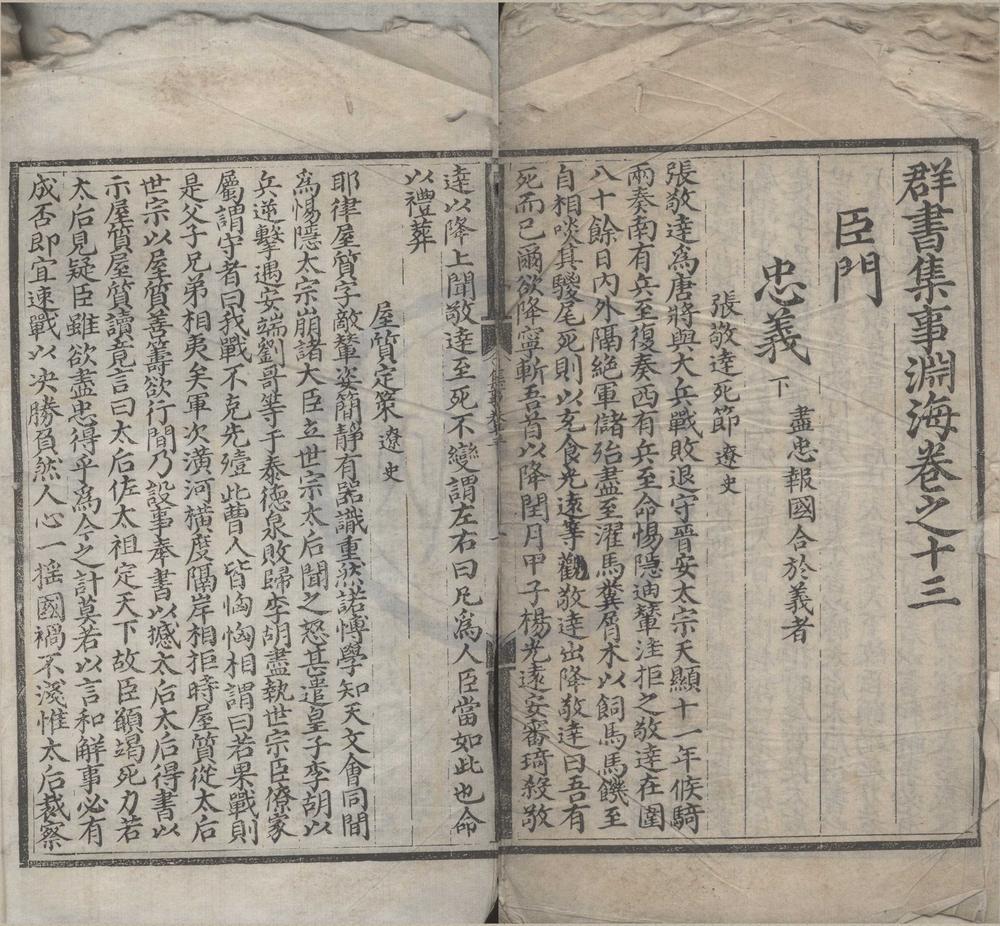 群書集事淵海卷之十三
臣門
忠義下 盡忠報國合於義者
張敬達死節 遼史
張敬達爲唐將與大兵戰敗退守晉安太宗天顯十一年候騎
兩奏南有兵至復奏西有兵至命惕隱迪輦洼拒之敬達在圍
八十餘日內外隔絶軍儲殆盡至濯馬糞屑木以飼馬馬饑至
自相啖其騣尾死則以充食光遠等勸敬達出降敬達曰吾有
死而已爾欲降寧斬吾首以降閏月甲子楊光遠安審琦殺敬
達以降上聞敬達至死不變謂左右曰凡爲人臣當如此也命
以禮葬
屋質定策 遼史
耶律屋質字敵輦姿簡靜有器識重然諾愽學知天文會同間
爲惕隱太宗崩諸大臣立世宗太后聞之怒甚遣皇子李胡以
兵逆擊遇安端劉哥等于泰德泉敗歸李胡盡執世宗臣僚家
屬謂守者曰我戰不克先殪此曹人皆恟恟相謂曰若果戰則
是父子兄弟相夷矣軍次潢河橫度隔岸相拒時屋質從太后
世宗以屋質善籌欲行間乃設事奉書以撼太后太后得書以
示屋質屋質讀竟言曰太后佐太祖定天下故臣願竭死力若
太后見疑臣雖欲盡忠得乎爲今之計莫若以言和解事必有
成否即宜速戰以决勝負然人心一揺國禍不淺惟太后裁察